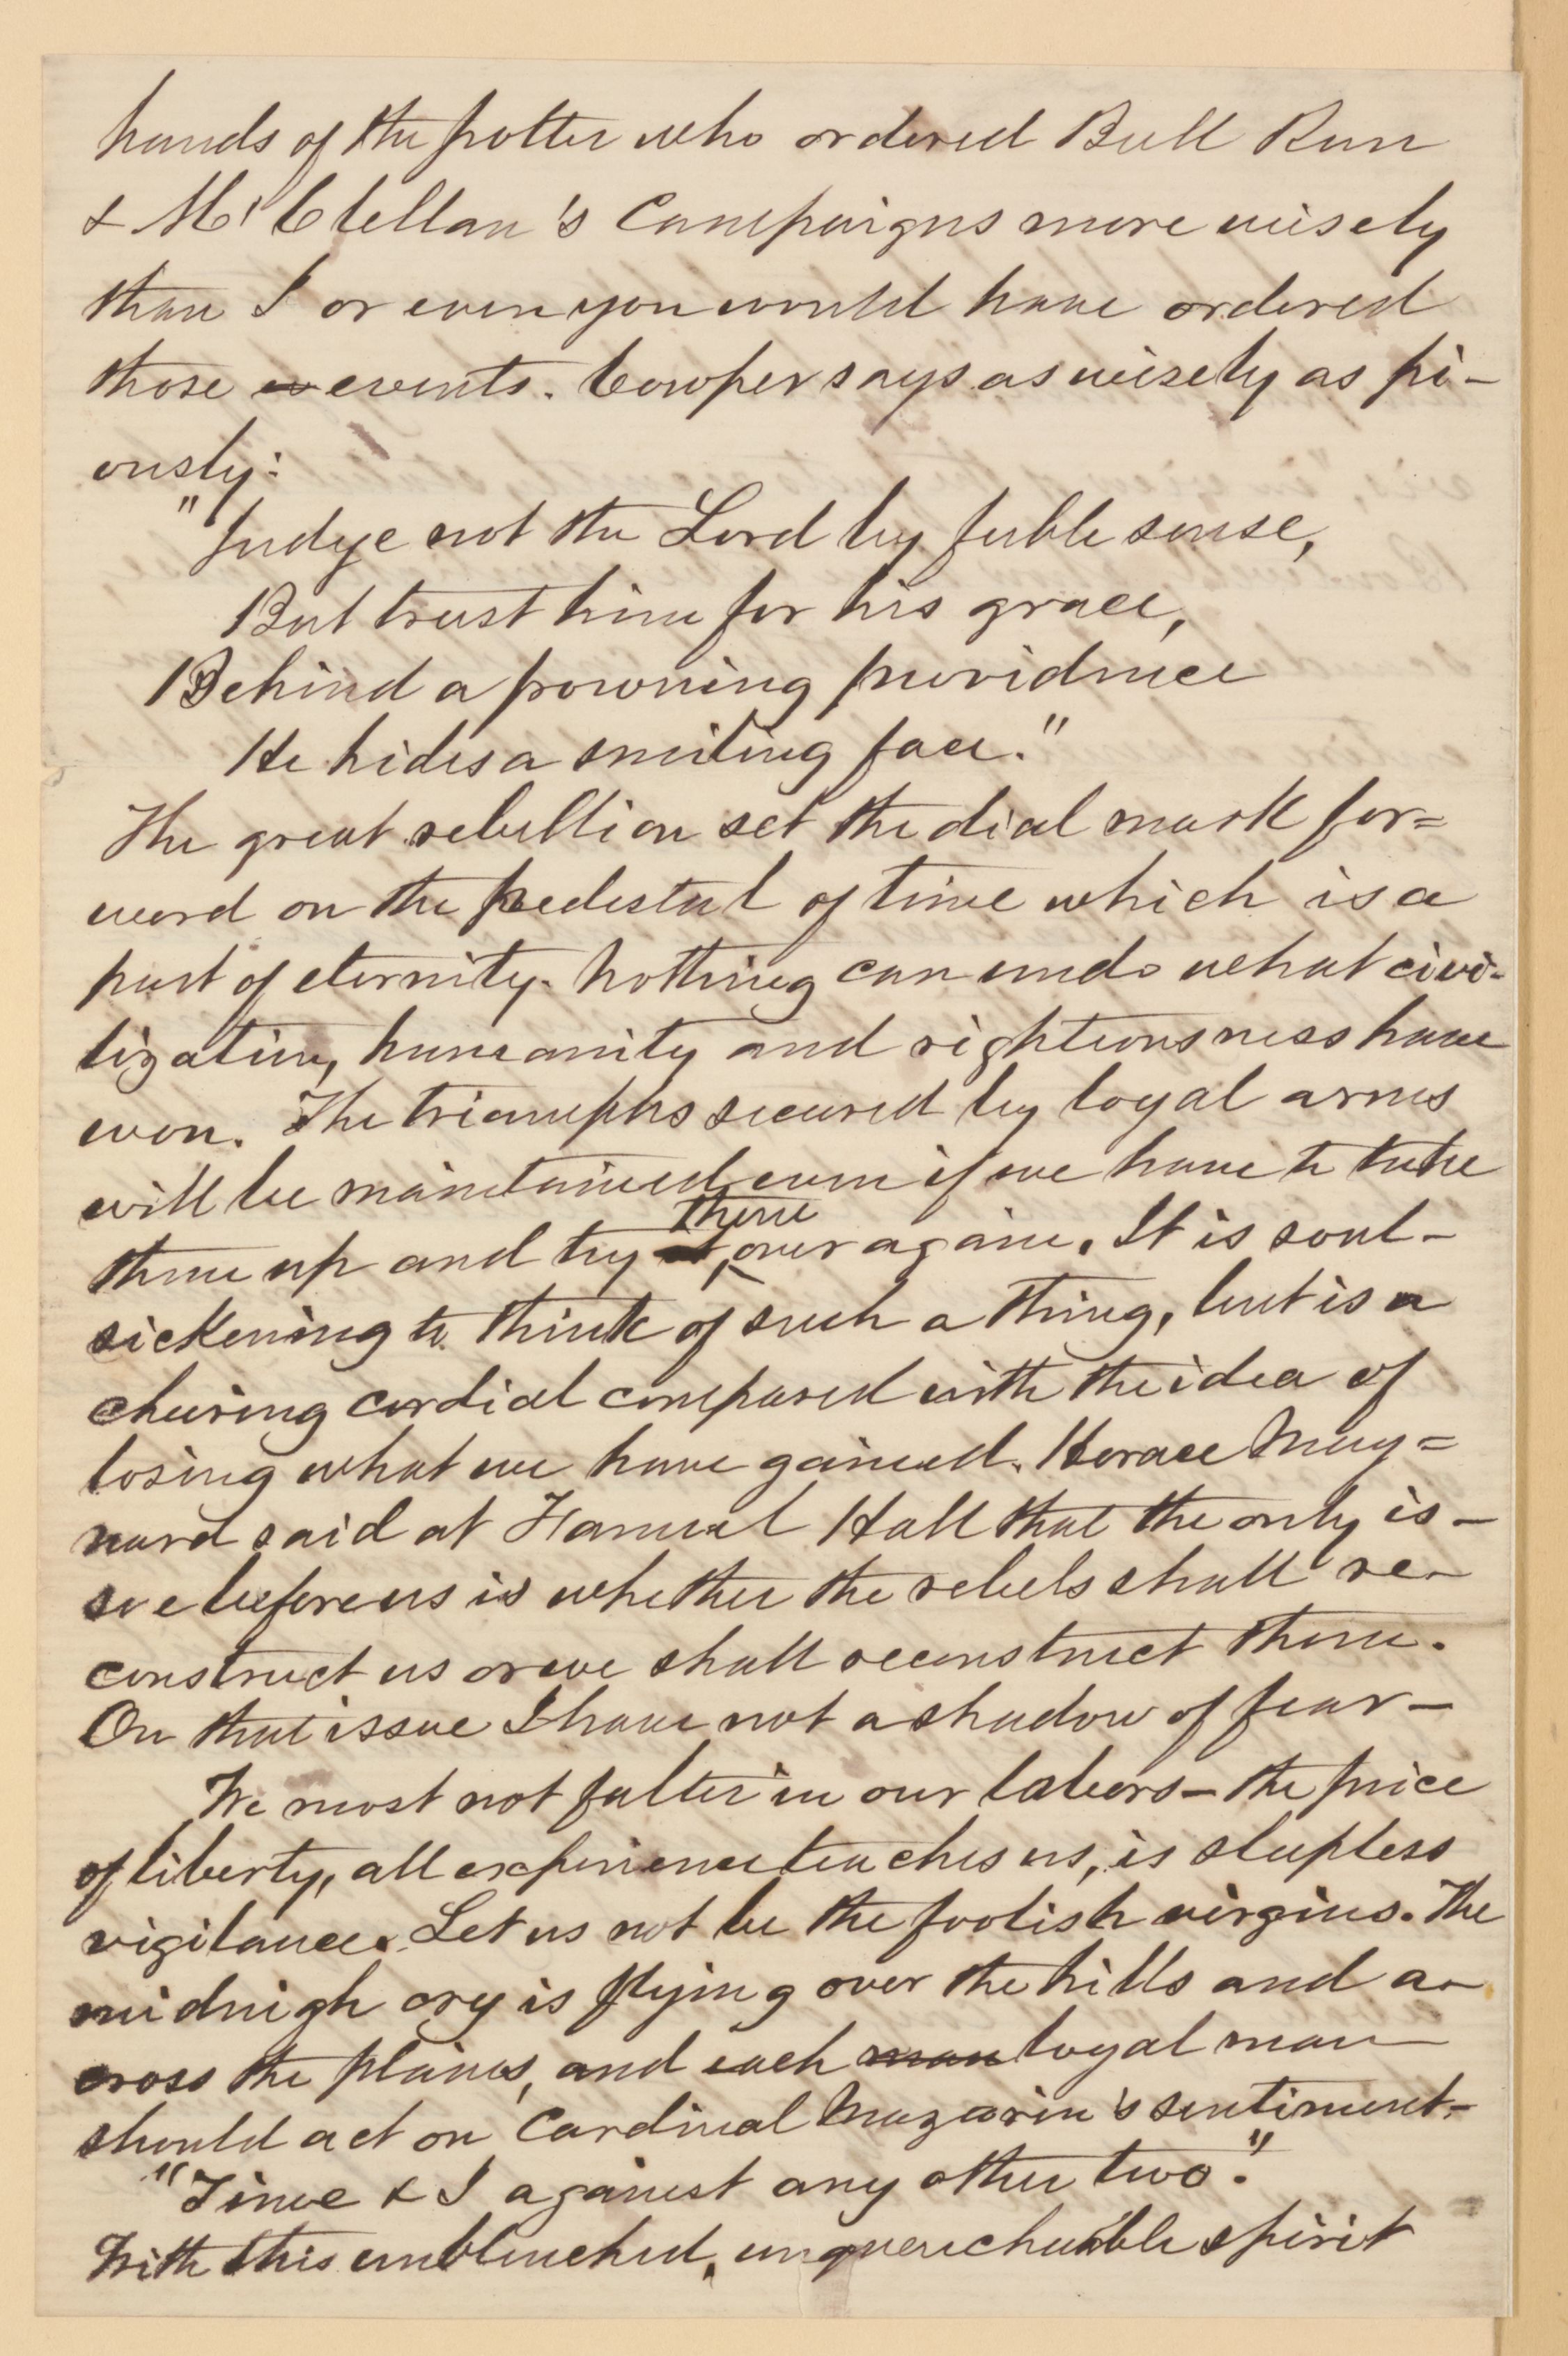 hands of the potter who ordered Bull Run
& McClellan's Campaigns more wisely
than I or even you would have ordered
those ev events. Cowper says as wisely as pi-
ously:
"Judge not the Lord by feeble sense,
But trust him for his grace,
Behind a frowning providence
He hides a smiling face."
The great rebellion set the dial mark for=
ward on the pedestal of time which is a
part of eternity. Nothing can undo what civi-
lization, humanity and righteousness have
won. The triumphs secured by loyal arms
will be maintained even if we have to take
them
them up and try over again. It is soul-
sickening to think of such a thing, but is a
cheering cordial compared with the idea of
losing what we have gained. Horace May=
nard said at Fanueil Hall that the only is-
sue before us is whether the rebels shall re-
construct us or we shall reconstruct them.
On that issue I have not a shadow of fear-
We most not falter in our labors- the price
of liberty, all experience teaches us, is sleepless
vigilance. Let us not be the foolish virgins. The
midnigh cry is flying over the hills and a-
cross the plains, and each man loyal man
should act on Cardinal Mazarin's sentiment-
"Time & I against any other two."
With this unblenched, unquenchable spirit